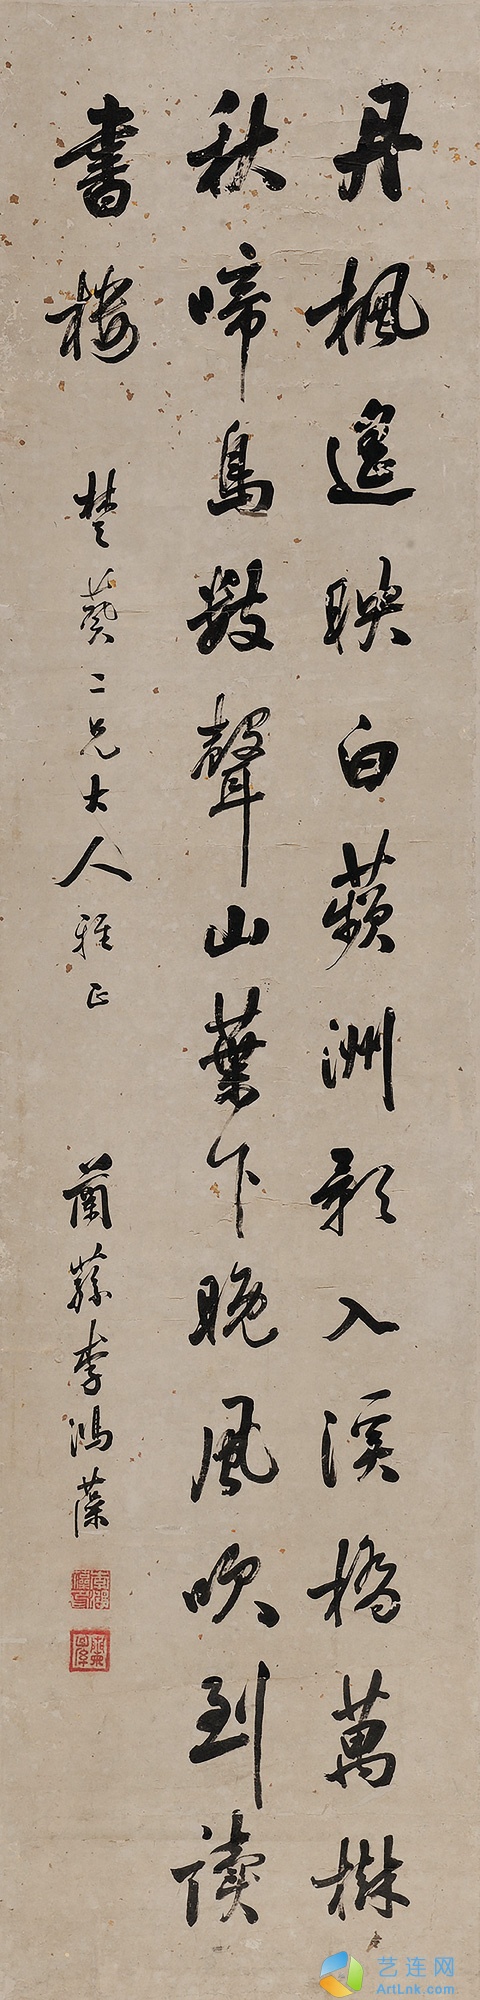 丹楓遥映白蘋洲影入溪橋萬樹
秋啼鳥數聲山葉下晚風吹到讀
書樓
楚葵二兄大人雅正
蘭蓀李鴻藻
艺连网
ArtLnk.com